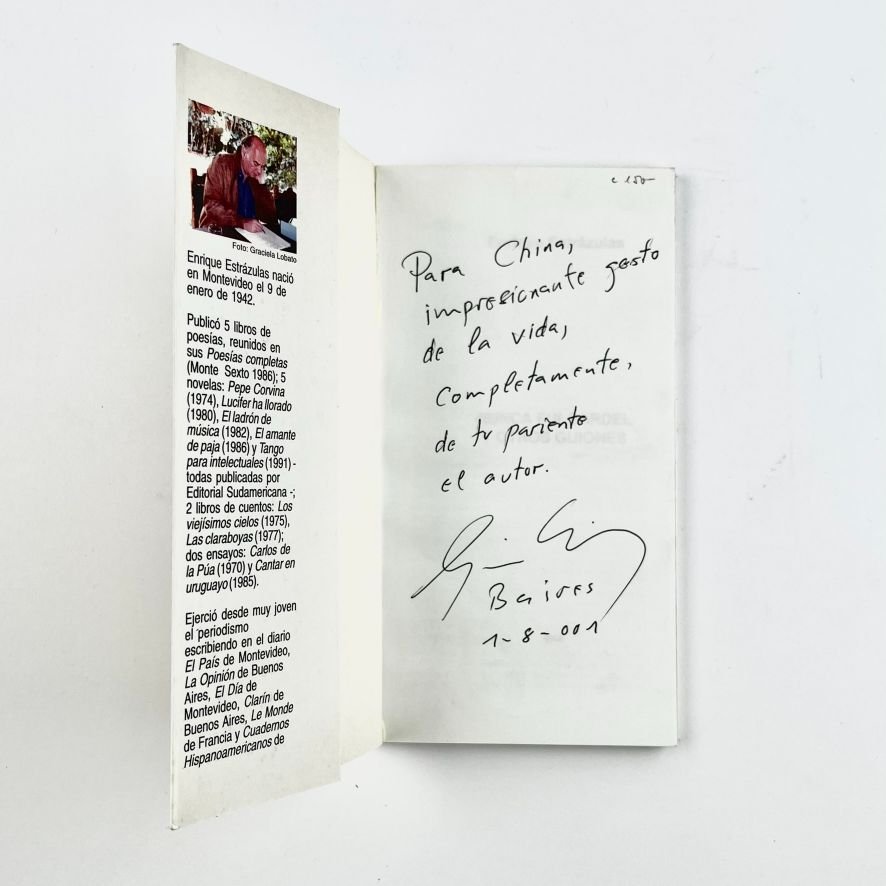 Foto: Graciela Lobato
Enrique Estrázulas nació
en Montevideo el 9 de
enero de 1942.
Publicó 5 libros de
poesías, reunidos en
sus Poesías completas
(Monte Sexto 1986); 5
novelas: Pepe Corvina
(1974), Lucifer ha llorado
(1980), El ladrón de
música (1982), El amante
de paja (1986) y Tango
para intelectuales (1991) -
todas publicadas por
Editorial Sudamericana -;
2 libros de cuentos: Los
viejísimos cielos (1975),
Las claraboyas (1977);
dos ensayos: Carlos de
la Púa (1970) y Cantar en
uruguayo (1985).
Ejerció desde muy joven
el periodismo
escribiendo en el diario
El País de Montevideo,
La Opinión de Buenos
Aires, El Día de
Montevideo, Clarín de
Buenos Aires, Le Monde
de Francia y Cuadernos
Hispanoamericanos de
Para China,
impresionante gesto
de la vida,
completamente,
de tu pariente
el autor.
Baires
1-8-001